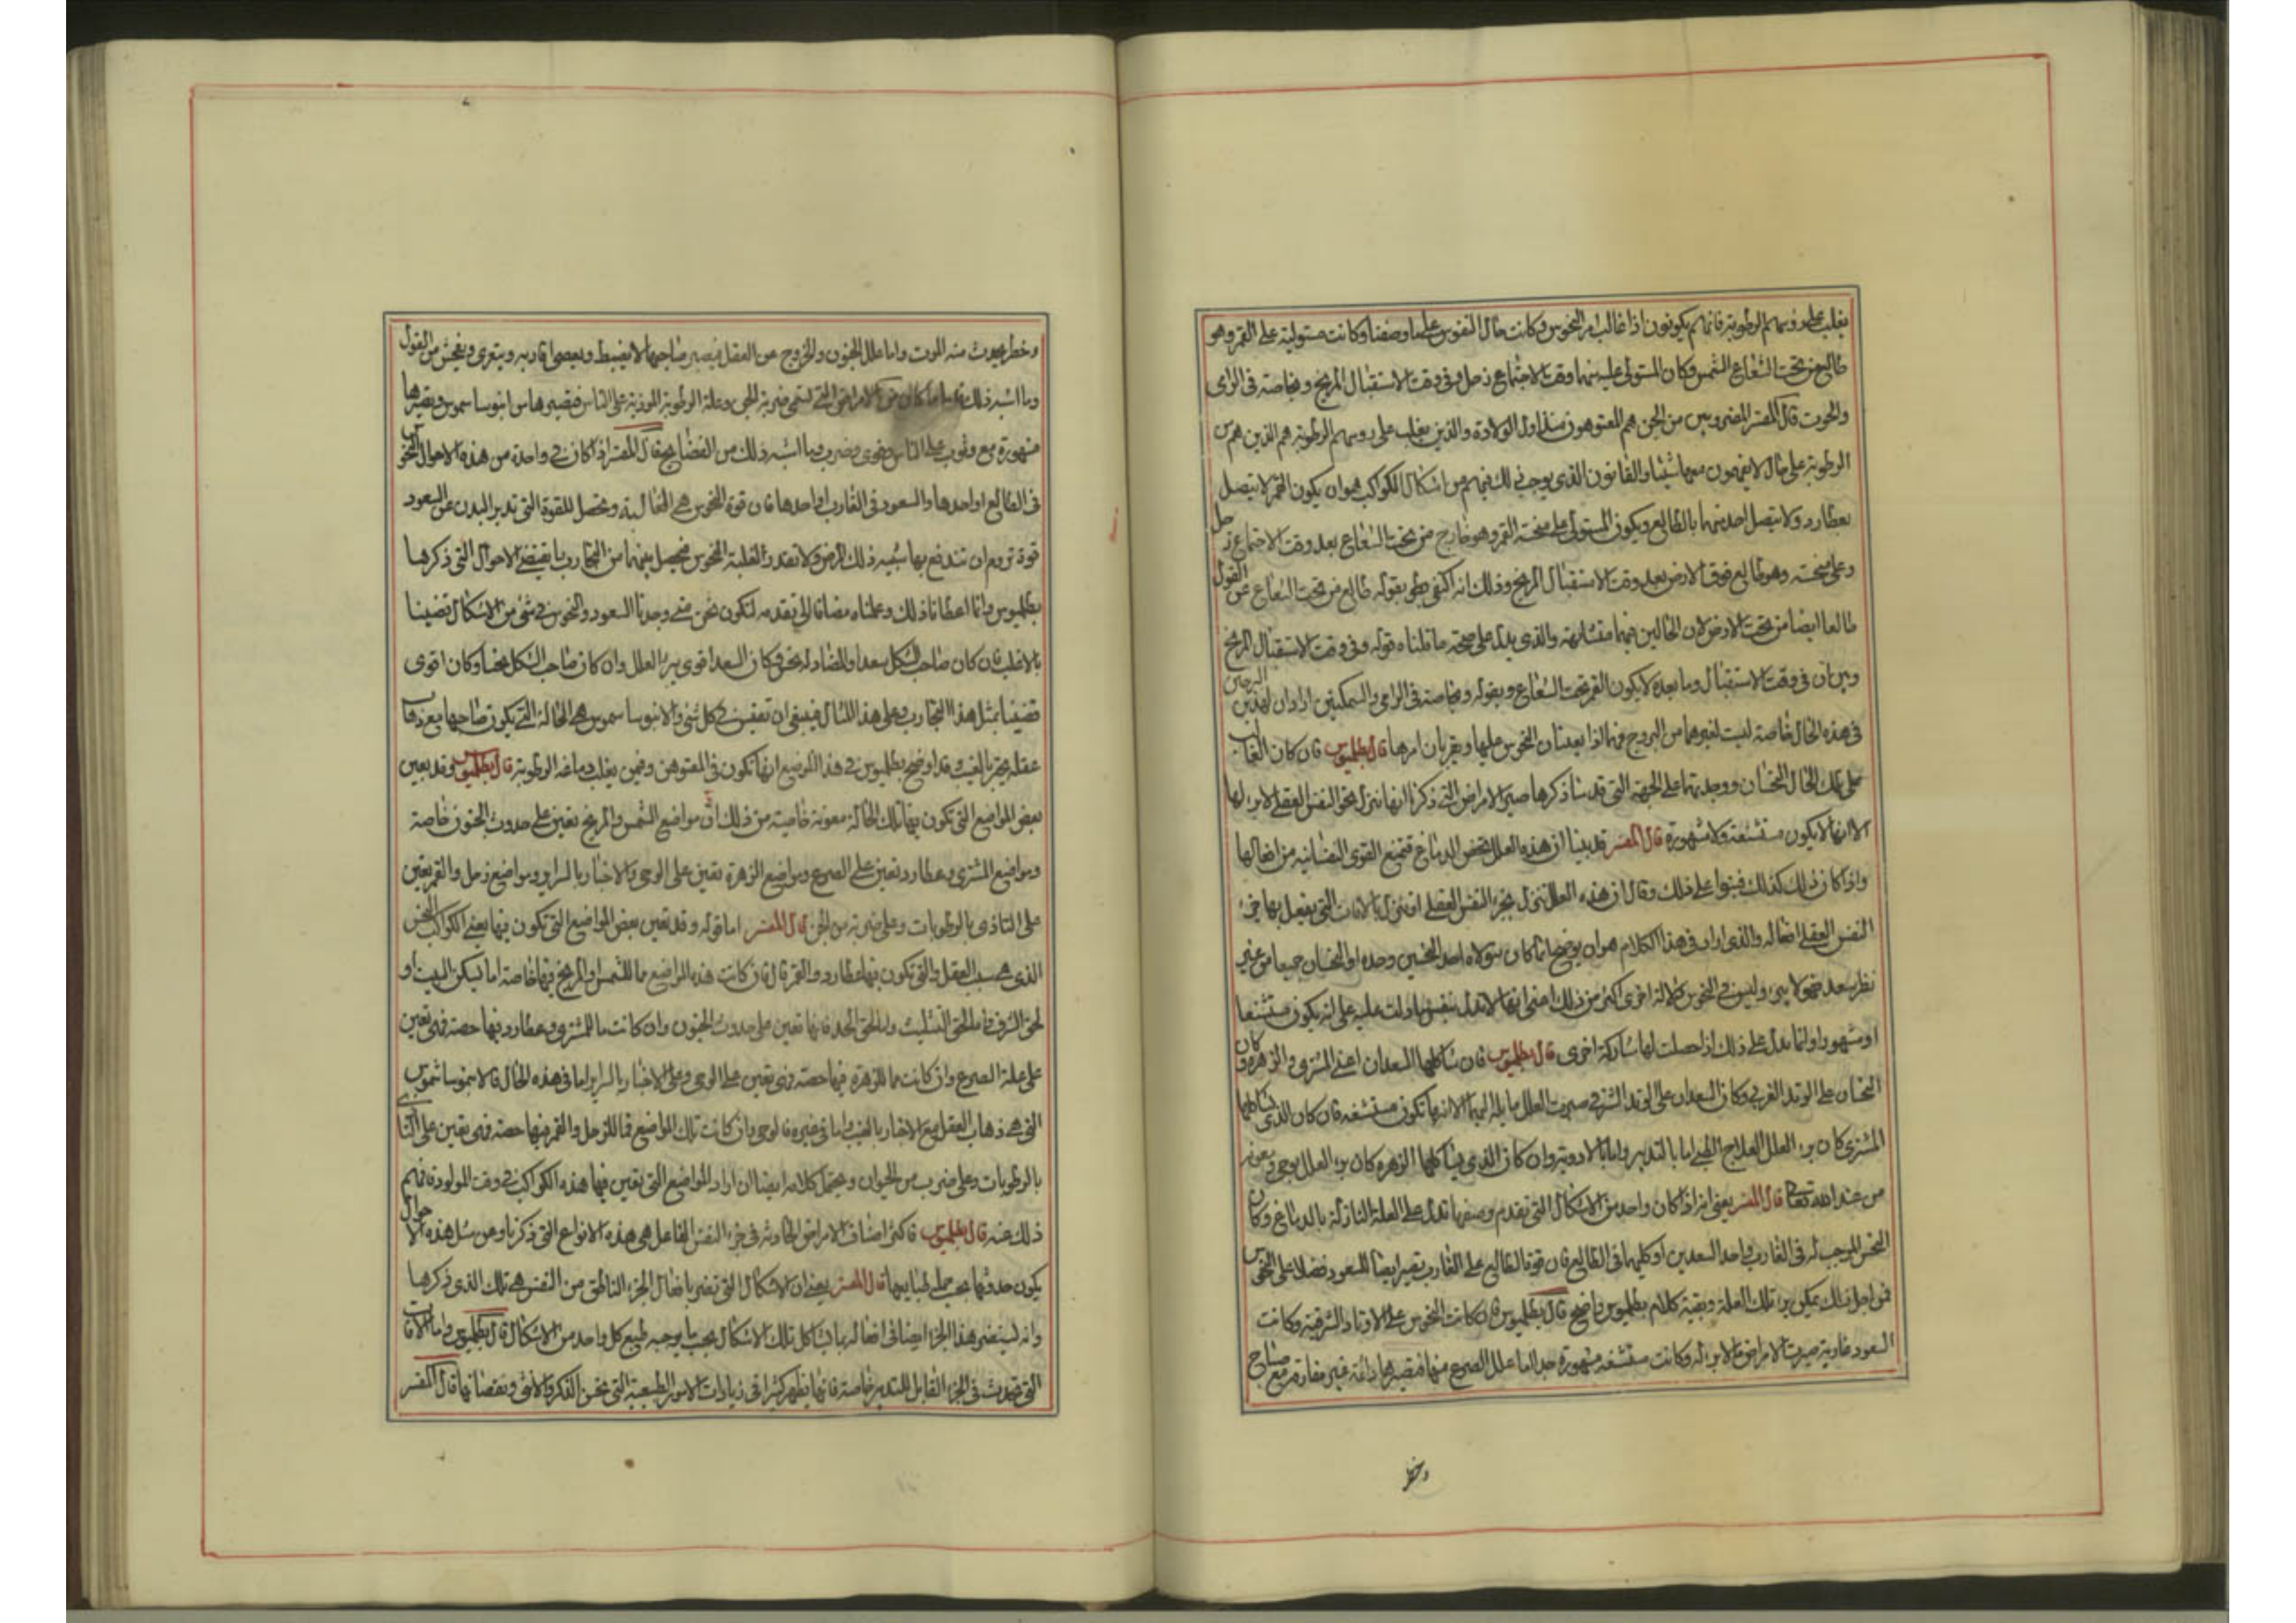 يغلب على روسهم الرطوبة فانهم يكونون اذا غالب امر النحوس وكانت حال النحوس على ما وصفنا وكانت مستولية على القمر وهو
طالع من تحت الشعاع الشمس وكان المستولى عليه منهما وقت الاجتماع زحل وفى وقت الاستقبال المريخ وبخاصة فى الرامى
والحوت قال المفسر المضروبين من الجن هم المعتوهون منذ اول الولادة والذين يغلب على روسهم الرطوبة هم الذين هم من
الرطوبة على حال لا يفهمون معها شيئا والقانون الذى يوجب ذلك فيهم من اشكال الكواكب هو ان يكون القمر لا يتصل
بعطارد ولا يتصل احد منهما بالطالع ويكون المستولى على صحة القمر وهو خارج من تحت الشعاع بعد وقت الاجتماع زحل
وعلى صحته وهو طالع فوق الارض بعد وقت الاستقبال المريخ وذلك انه اكتفى بقوله طالع من تحت الشعاع عن القول
طالعا ايضا من تحت الارض لان الحالين فيهما متشابهة والذى يدل على صحة ما قلناه قوله وفى وقت الاستقبال المريخ
وبين ان فى وقت الاستقبال وما بعده لا يكون القمر تحت الشعاع وبقوله وبخاصة فى الرامى والسمكتين اراد ان لهذين البرجين
فى هذه الحال خاصة ليست لغيرهما من البروج قال بطلميوس فان كان الغالب
على تلك الحال النحسان ووجدتهما على الجهة التى قدمنا ذكرها صير الامراض التى ذكرنا انها تنزل بجزء النفس العقلى لا برء لها
الا انها لا يكون مستشنعة ولا مشهورة قال المفسر قد بينا ان هذه العلل تخص الدماغ فتمنع القوى النفسانية من افعالها
واذا كان ذلك كذلك فبنوا على ذلك وقال ان هذه العلل تنزل بجزء النفس العقلى او تنزل بالالات التى يفعل بها جزء
النفس العقلى افعاله والذى اراد فى هذا الكلام هو ان يوضح ما كان يتولاه احد النحسين وحده او النحسان جميعا من غير
نظر سعد فهو لا يبرء وليس فى النحوس دلالة اخرى اكثر من ذلك اعنى انها لا تدل بنفس ما دلت عليه على انه يكون مستشنعا
او مشهورا وانما تدل على ذلك اذا حصلت لها مشاركة اخرى قال بطلميوس فان شاكلهما السعدان اعنى المشترى والزهرة وكان
النحسان على الوتد الغربى وكان السعدان على الوتد الشرقى صيرت العلل مايلة اليها الا انها تكون مستشنعة فان كان الذى شاكلهما
المشترى كان برء العلل بالعلاج الطبى اما بالتدبير واما بالادوية وان كان الذى يشاكلهما الزهرة كان برء العلل بوحى ومعونة
من عند الله تعالى قال المفسر يعنى انه اذا كان واحد من الاشكال التى تقدم وصفها تدل على العلة النازلة بالدماغ وكان
النحس الموجب له فى الغارب واحد السعدين او كليهما فى الطالع فان قوة الطالع على الغارب تصير ايضا للسعود فضلا على النحوس
فمن اجل ذلك يمكن برء تلك العلة وبقية كلام بطلميوس واضح قال بطلميوس فان كانت النحوس على الاوتاد الشرقية وكانت
السعود غاربة صيرت الامراض ما لا برء له وكانت مستشنعة مشهورة جدا اما علل الصرع منها فتصيرها دائمة غير مفارقة مع صياح
وخطر
وخطر يحدث منه الموت واما علل الجنون والخروج عن العقل فيصير صاحبها لا يضبط ويعصى اقاربه ويتعرى ويفحش من القول
وما اشبه ذلك واما ما كان من الامراض التى تسمى ضربة الجن وعلة الرطوبة الموذية على الناس فيصيرها من ابنوسا سموس ويصيرها
مشهورة مع وثوب على الناس وضرب وما اشبه ذلك من الفضايح قال المفسر اذا كان فى واحدة من هذه الاحوال النحوس
فى الطالع او احدها والسعود فى الغارب او احدها فان قوة النحوس هى الغالبة وتحصل للقوة التى تدبر البدن عن السعود
قوة تروم ان تندفع بها شبيه ذلك المرض ولا تقدر لغلبة النحوس فيحصل بينهما من التجارب ما يقتضى الاحوال التى ذكرها
بطلميوس وانما اعطانا ذلك وعلمناه مضافا الى تقدمه لنكون نحن متى وجدنا السعود والنحوس فى شئ من الاشكال قضينا
بالاغلب فان كان صاحب الشكل سعدا والمضاد له نحس وكان السعد اقوى برء العلل وان كان صاحب الشكل نحسا وكان اقوى
قضينا بمثل هذا التجارب وعلى هذا المثال فينبغى ان تقيس فى كل شئ والانبوسا سموس هى الحالة التى يكون صاحبها مع ذهاب
عقله يخبر بالغيب وقد اوضح بطلميوس فى هذا الموضع انها تكون فى المعتوهين وفيمن يغلب دماغه الرطوبة قال بطلميوس وقد يعين
بعض المواضع التى تكون بها تلك الحالة معونة خاصية من ذلك ان مواضع الشمس والمريخ تعين على حدوث الجنون خاصة
ومواضع المشترى وعطارد تعين على الصرع ومواضع الزهرة تعين على الوحى والاخبار بالسراير ومواضع زحل والقمر تعين
على التاذى بالرطوبات وعلى ضربة من الجن قال المفسر اما قوله وقد تعين بعض المواضع التى تكون بها يعنى الكواكب النحس
الذى هى سبب العقل والتى تكون بها عطارد والقمر قال فان كانت هذه المواضع مما للشمس والمريخ فيها خاصة اما لحق البيت او
لحق الشرف واما لحق التثليث واما لحق الحد فانها تعين على حدوث الجنون وان كانت مما للمشترى وعطارد فيها حصة فهى تعين
على علة الصرع وان كانت مما للزهرة فيها حصة فهى تعين على الوحى وعلى الاخبار بالسراير اما فى هذه الحال فالانبوسا سموس
التى هى ذهاب العقل مع الاخبار بالغيب واما فى غيره فالوحى وان كانت تلك المواضع مما لزحل والقمر فيها حصة فهى تعين على التاذى
بالرطوبات وعلى ضروب من الحيوان ويحتمل كلامه ايضا ان اراد المواضع التى تعين فيها هذه الكواكب فى وقت المولود فافهم
ذلك عنه قال بطلميوس فاكثر اصناف الامراض الحادثة فى جزء النفس الفاعل هى هذه الانواع التى ذكرنا ومن مثل هذه الاحوال
يكون حدوثها بحسب جملة طبايعها قال المفسر يعنى ان الاشكال التى تضر بافعال الجزء الناطق من النفس هى تلك الذى ذكرها
وانه ليستضر هذا الجزء ايضا فى افعاله بما يشاكل تلك الاشكال بحسب ما يوجبه طبع كل واحد من الاشكال قال بطلميوس واما الافات
التى تحدث فى الجزء القابل للتدبير خاصة فانها يظهر كثيرا فى زيادات الامور الطبيعية التى تخص الذكر والانثى ونقصانها قال المفسر